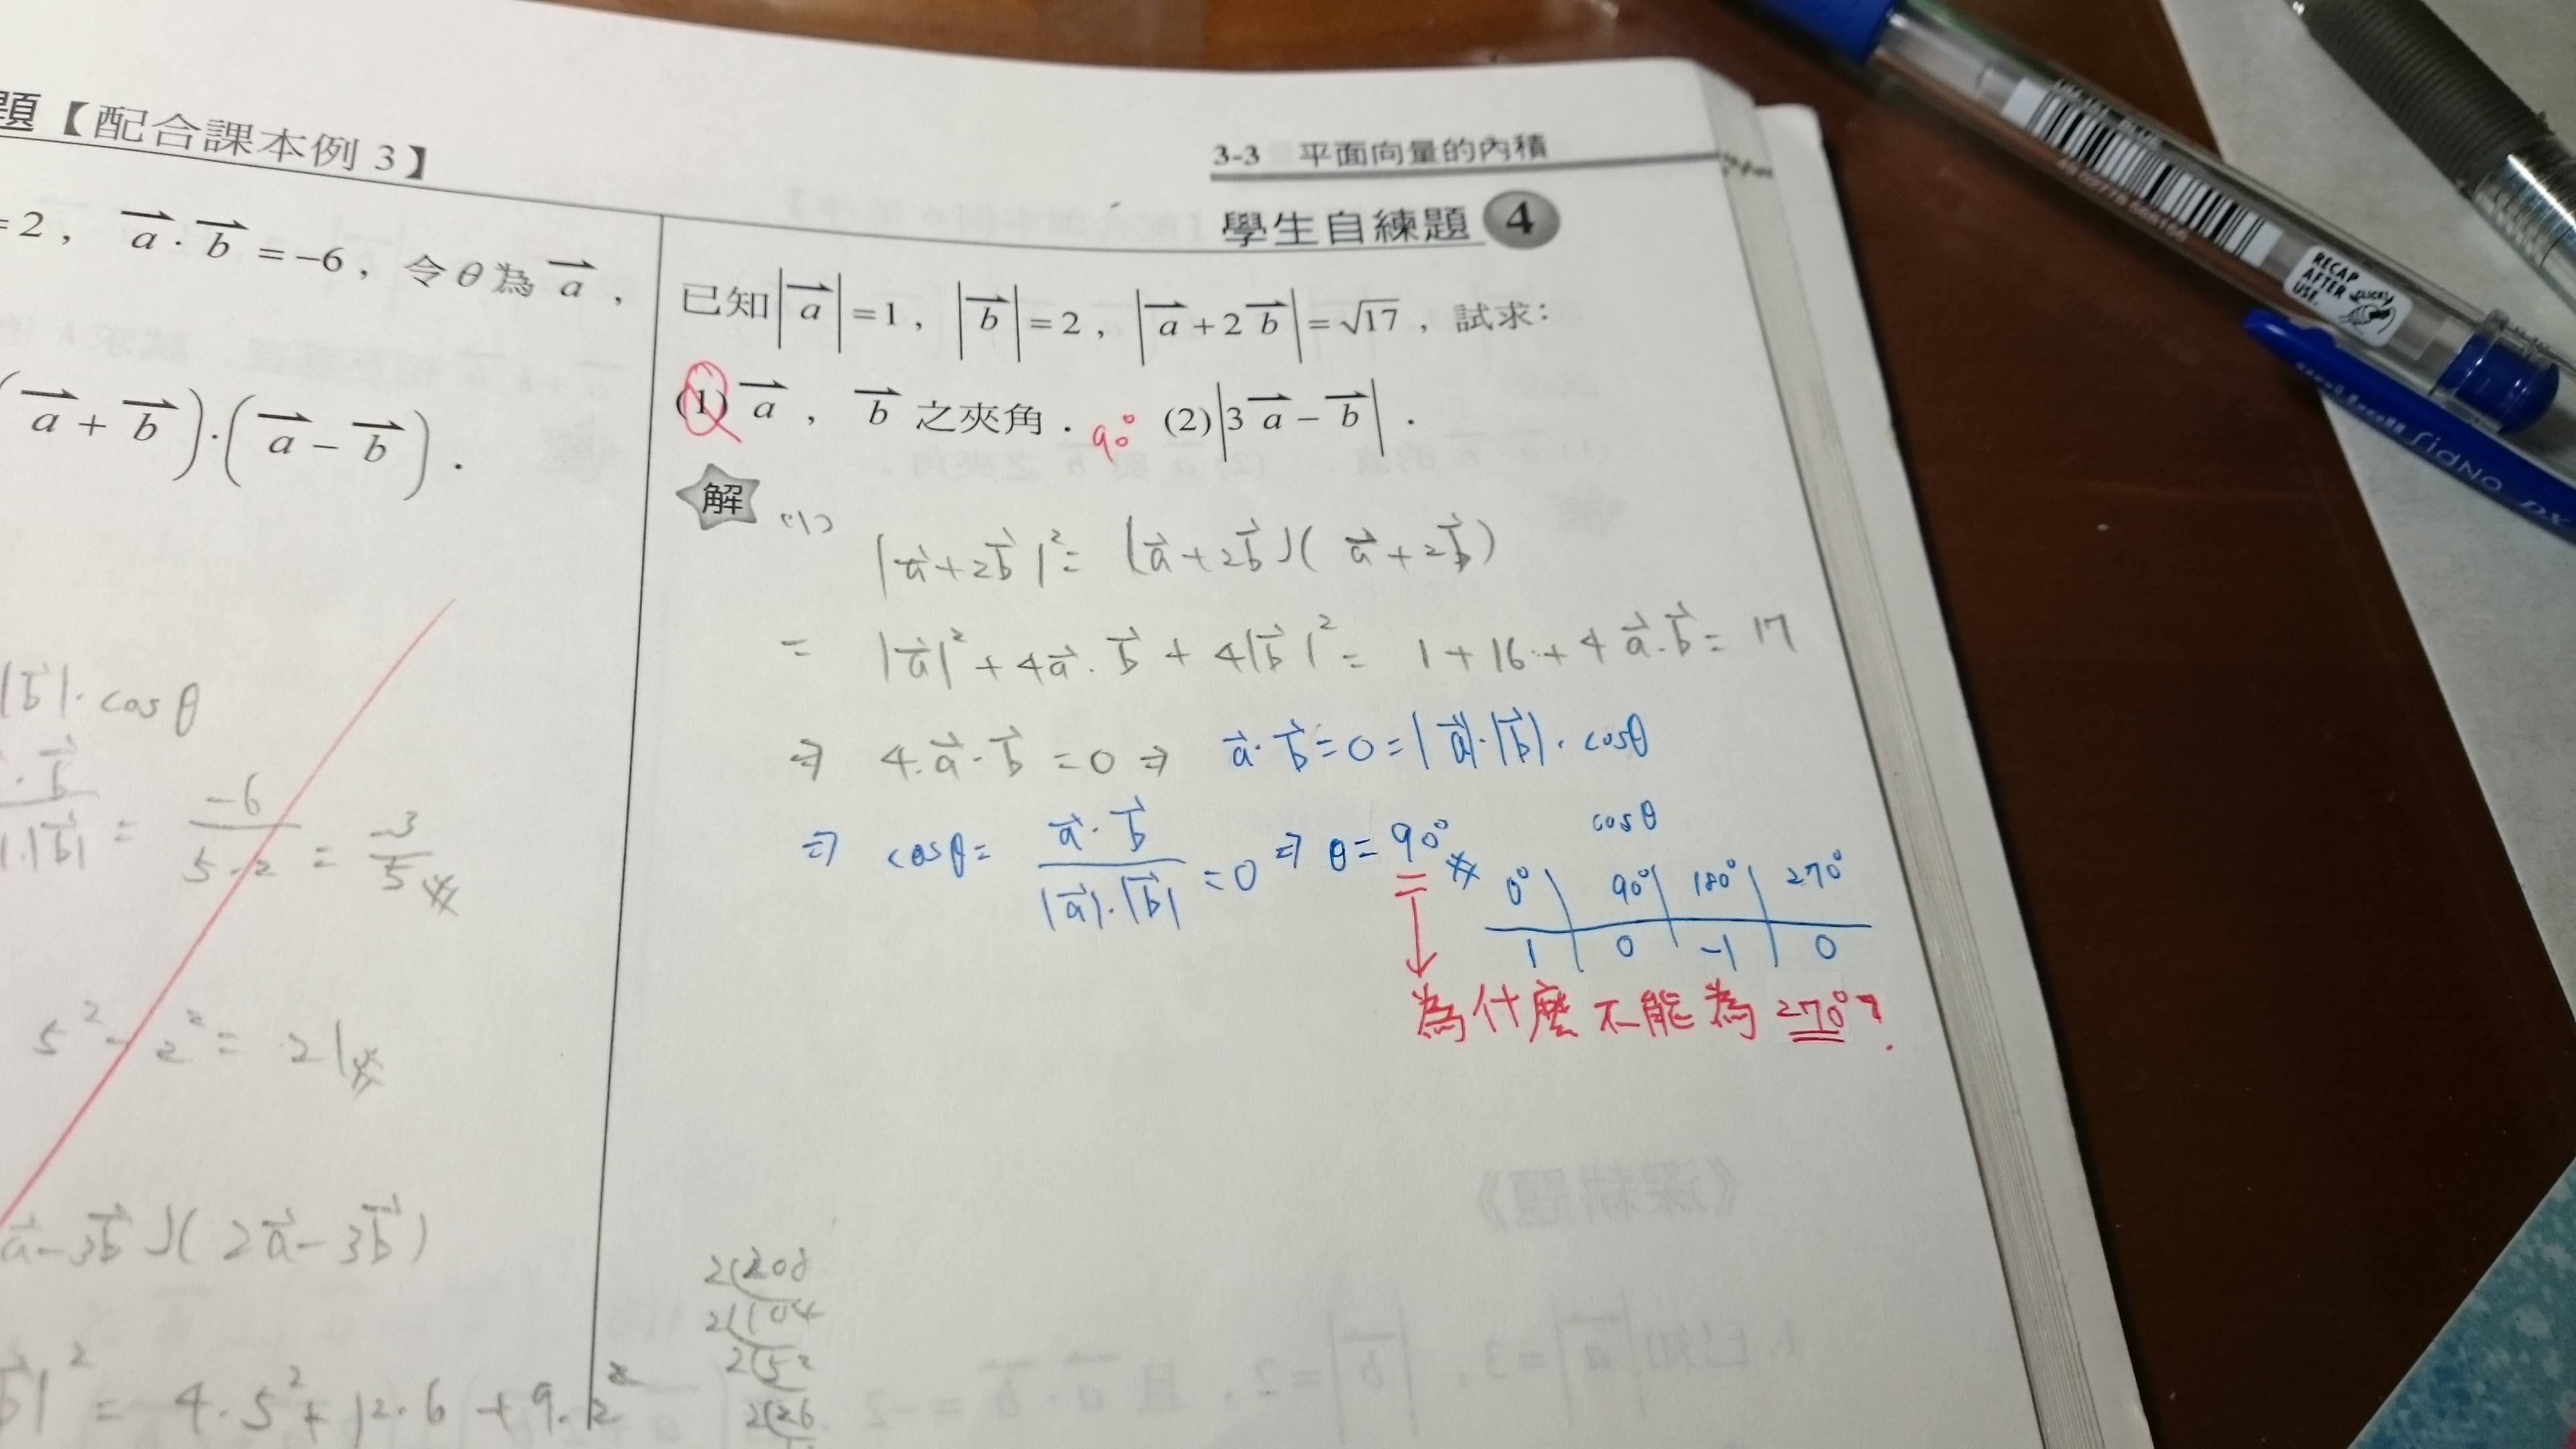 題【配合課本例 3】
=2， a⃗ · b⃗ = −6，令 θ 為 a⃗，
(a⃗ + b⃗)·(a⃗ − b⃗)．
|b⃗|·cosθ
·b⃗ / |·|b⃗| = −6 / 5·2 = −3 / 5
5² − 2² = 21
a⃗−3b⃗)(2a⃗−3b⃗)
b⃗|² = 4·5² + 12·6 + 9·2²
3-3 平面向量的內積
學生自練題 4
已知|a⃗|=1，|b⃗|=2，|a⃗+2b⃗|=√17，試求：
(1) a⃗，b⃗ 之夾角． 90° (2)|3a⃗−b⃗|．
解 (1)
|a⃗+2b⃗|² = (a⃗+2b⃗)(a⃗+2b⃗)
= |a⃗|²+4a⃗·b⃗+4|b⃗|² = 1+16+4a⃗·b⃗ = 17
⇒ 4·a⃗·b⃗ = 0 ⇒ a⃗·b⃗=0=|a⃗|·|b⃗|·cosθ
⇒ cosθ= a⃗·b⃗ / |a⃗|·|b⃗| = 0 ⇒ θ = 90°
cosθ
0° 90° 180° 270°
1 0 −1 0
為什麼不能為 270°?
2(208
2(104
2(52
2(26
RECAP
AFTER
USE.
CLICK!
uni-ball SigNO DX